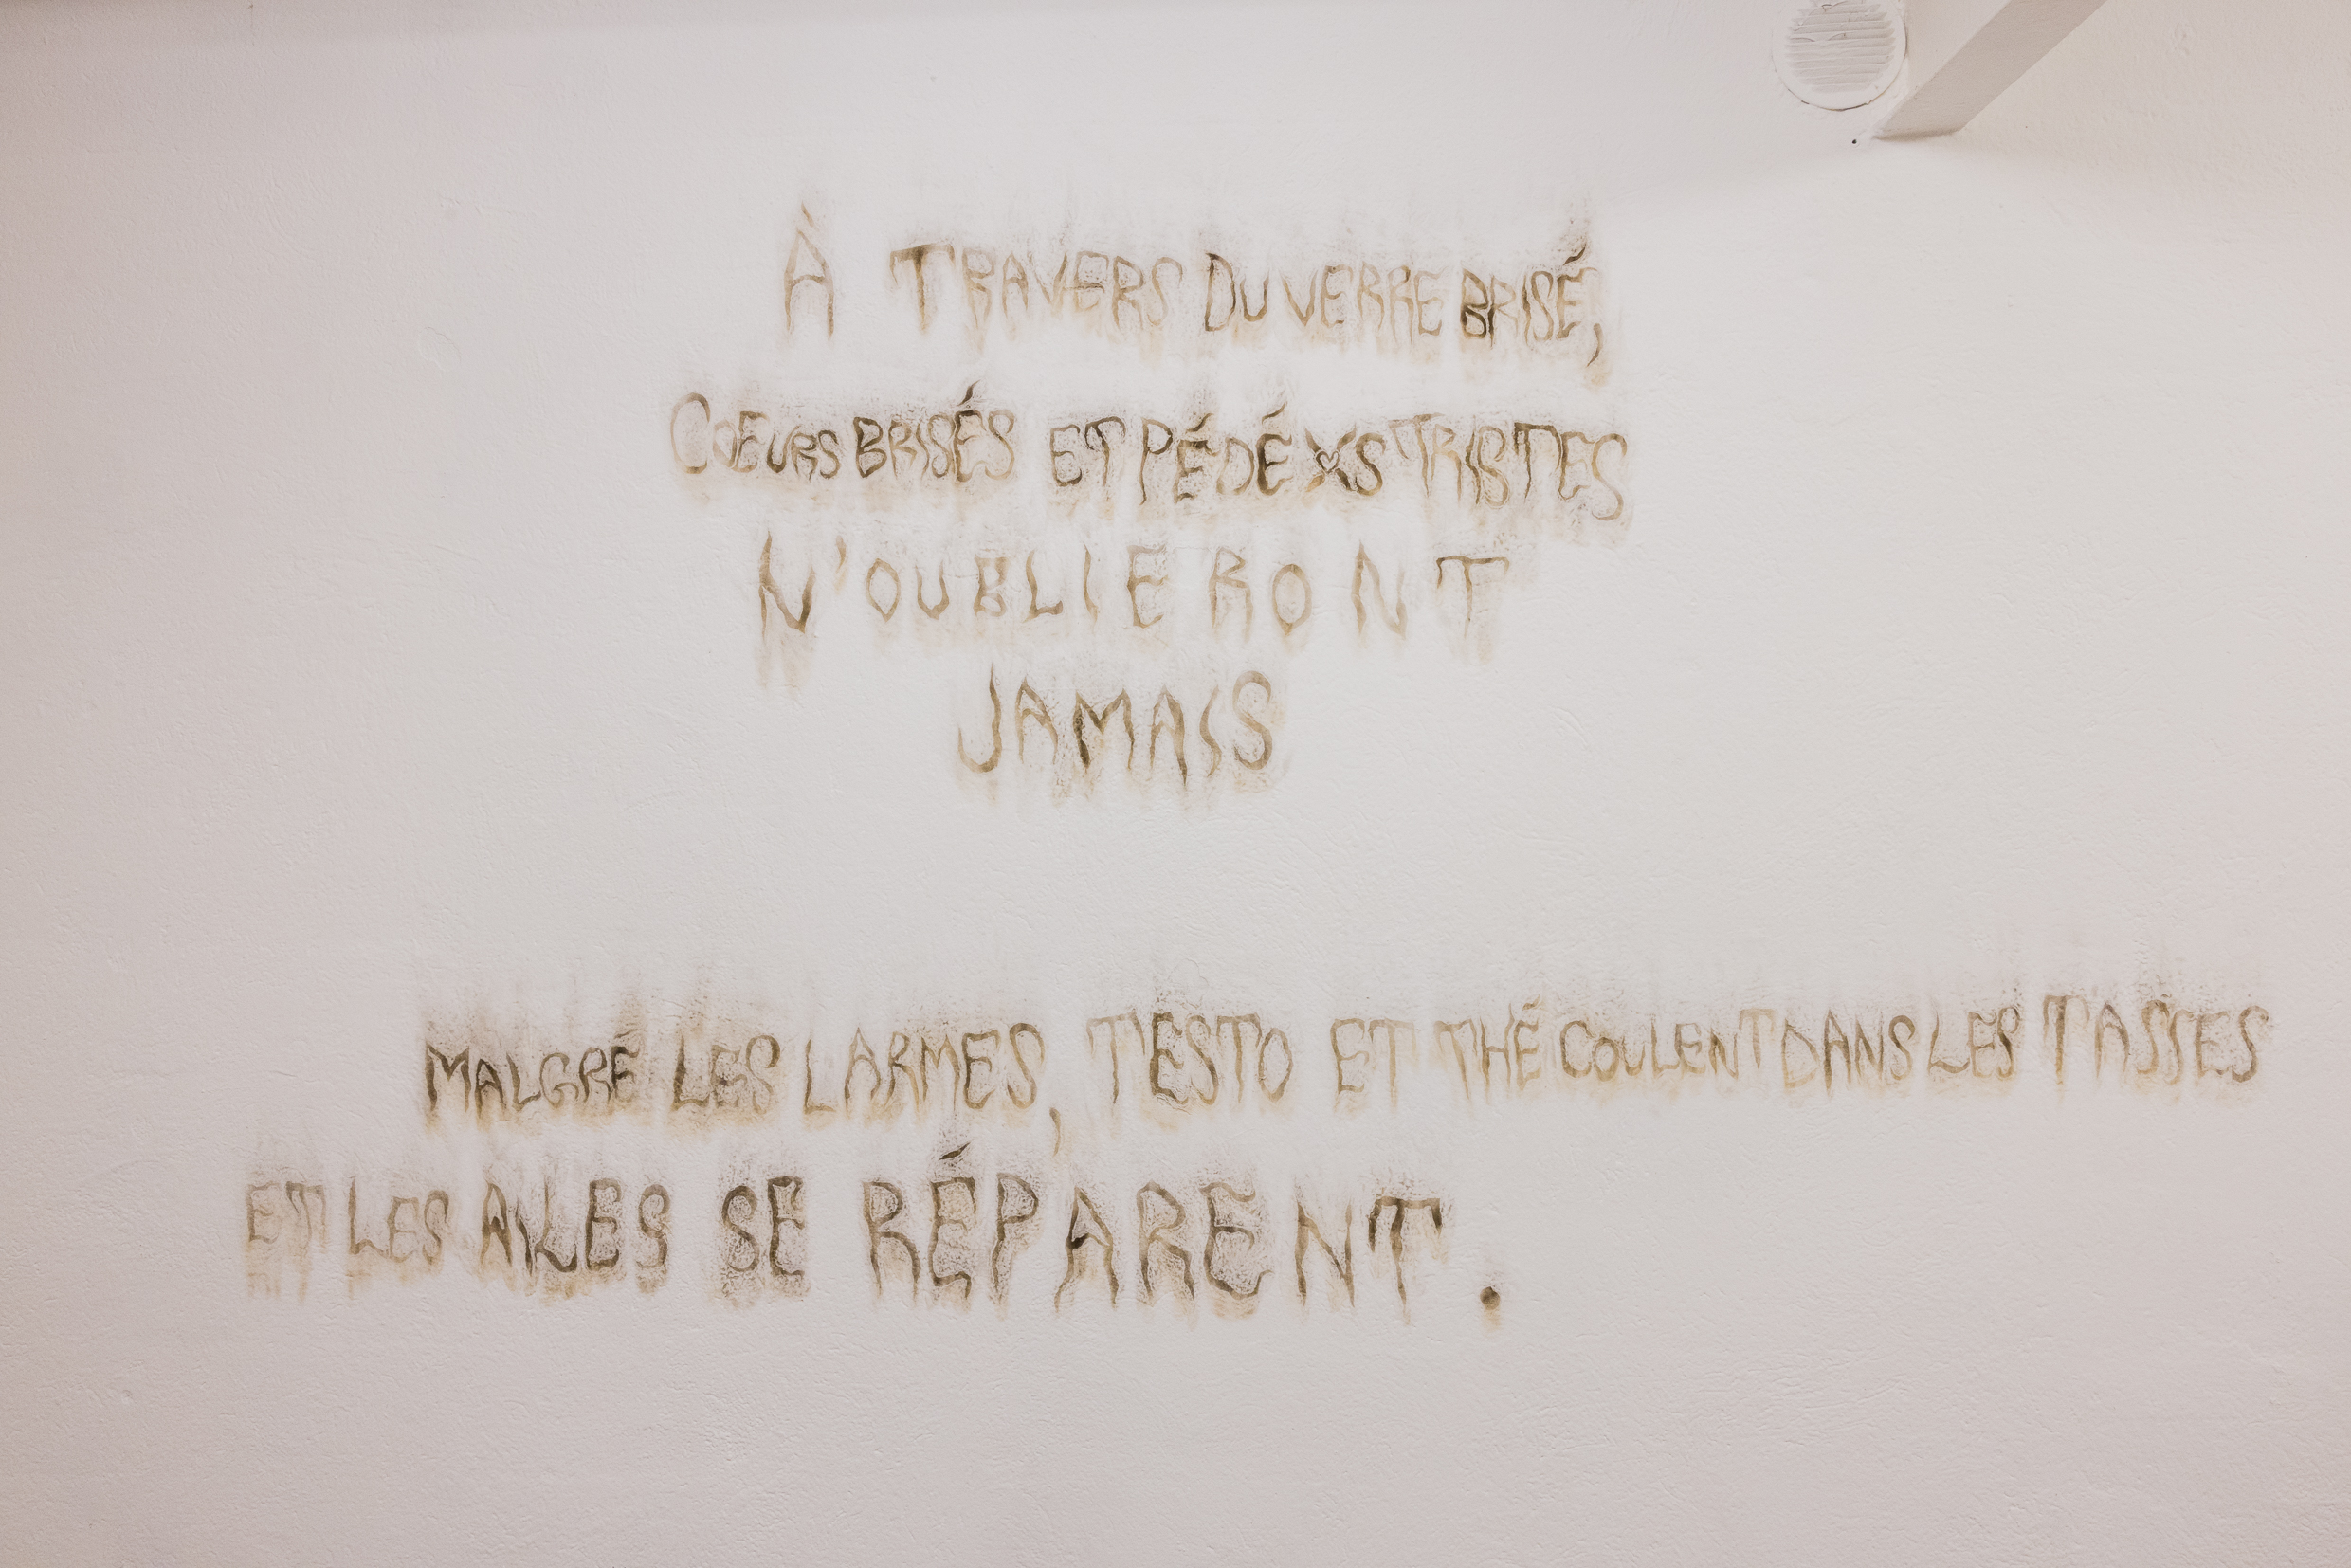 À TRAVERS DU VERRE BRISÉ,
COEURS BRISÉS ET PÉDÉXS TRISTES
N'OUBLIERONT
JAMAIS
MALGRÉ LES LARMES, TESTO ET THÉ COULENT DANS LES TASSES
ET LES AILES SE RÉPARENT.